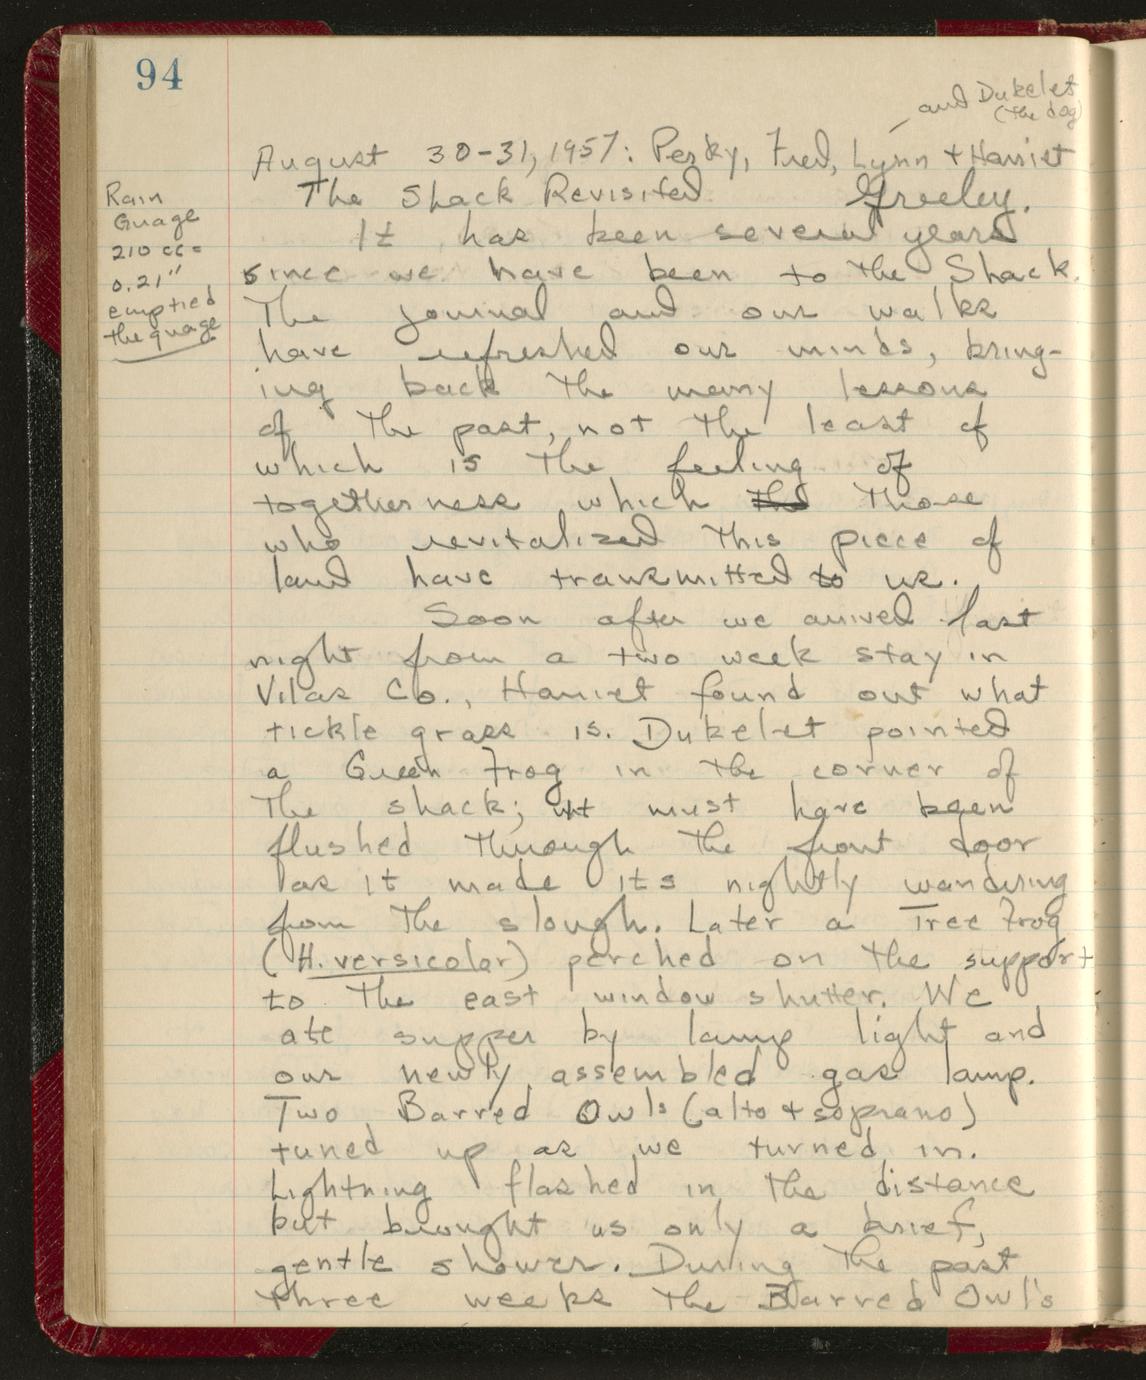 94
and Dukelet
(the dog)
August 30-31, 1957: Perky, Fred, Lynn + Harriet
The Shack Revisited Greeley.
Rain
Guage
210 cc =
0.21"
emptied
the guage
It has been several years
since we have been to the Shack.
The journal and our walks
have refreshed our minds, bring-
ing back the many lessons
of the past, not the least of
which is the feeling of
togetherness which the those
who revitalized this piece of
land have transmitted to us.
Soon after we arrived last
night from a two week stay in
Vilas Co., Harriet found out what
tickle grass is. Dukelet pointed
a Green Frog in the corner of
the shack; it must have been
flushed through the front door
as it made its nightly wandering
from the slough. Later a Tree Frog
(H. versicolor) perched on the support
to the east window shutter. We
ate supper by lamp light and
our newly assembled gas lamp.
Two Barred Owls (alto + soprano)
tuned up as we turned in.
Lightning flashed in the distance
but brought us only a brief,
gentle shower. During the past
three weeks the Barred Owls